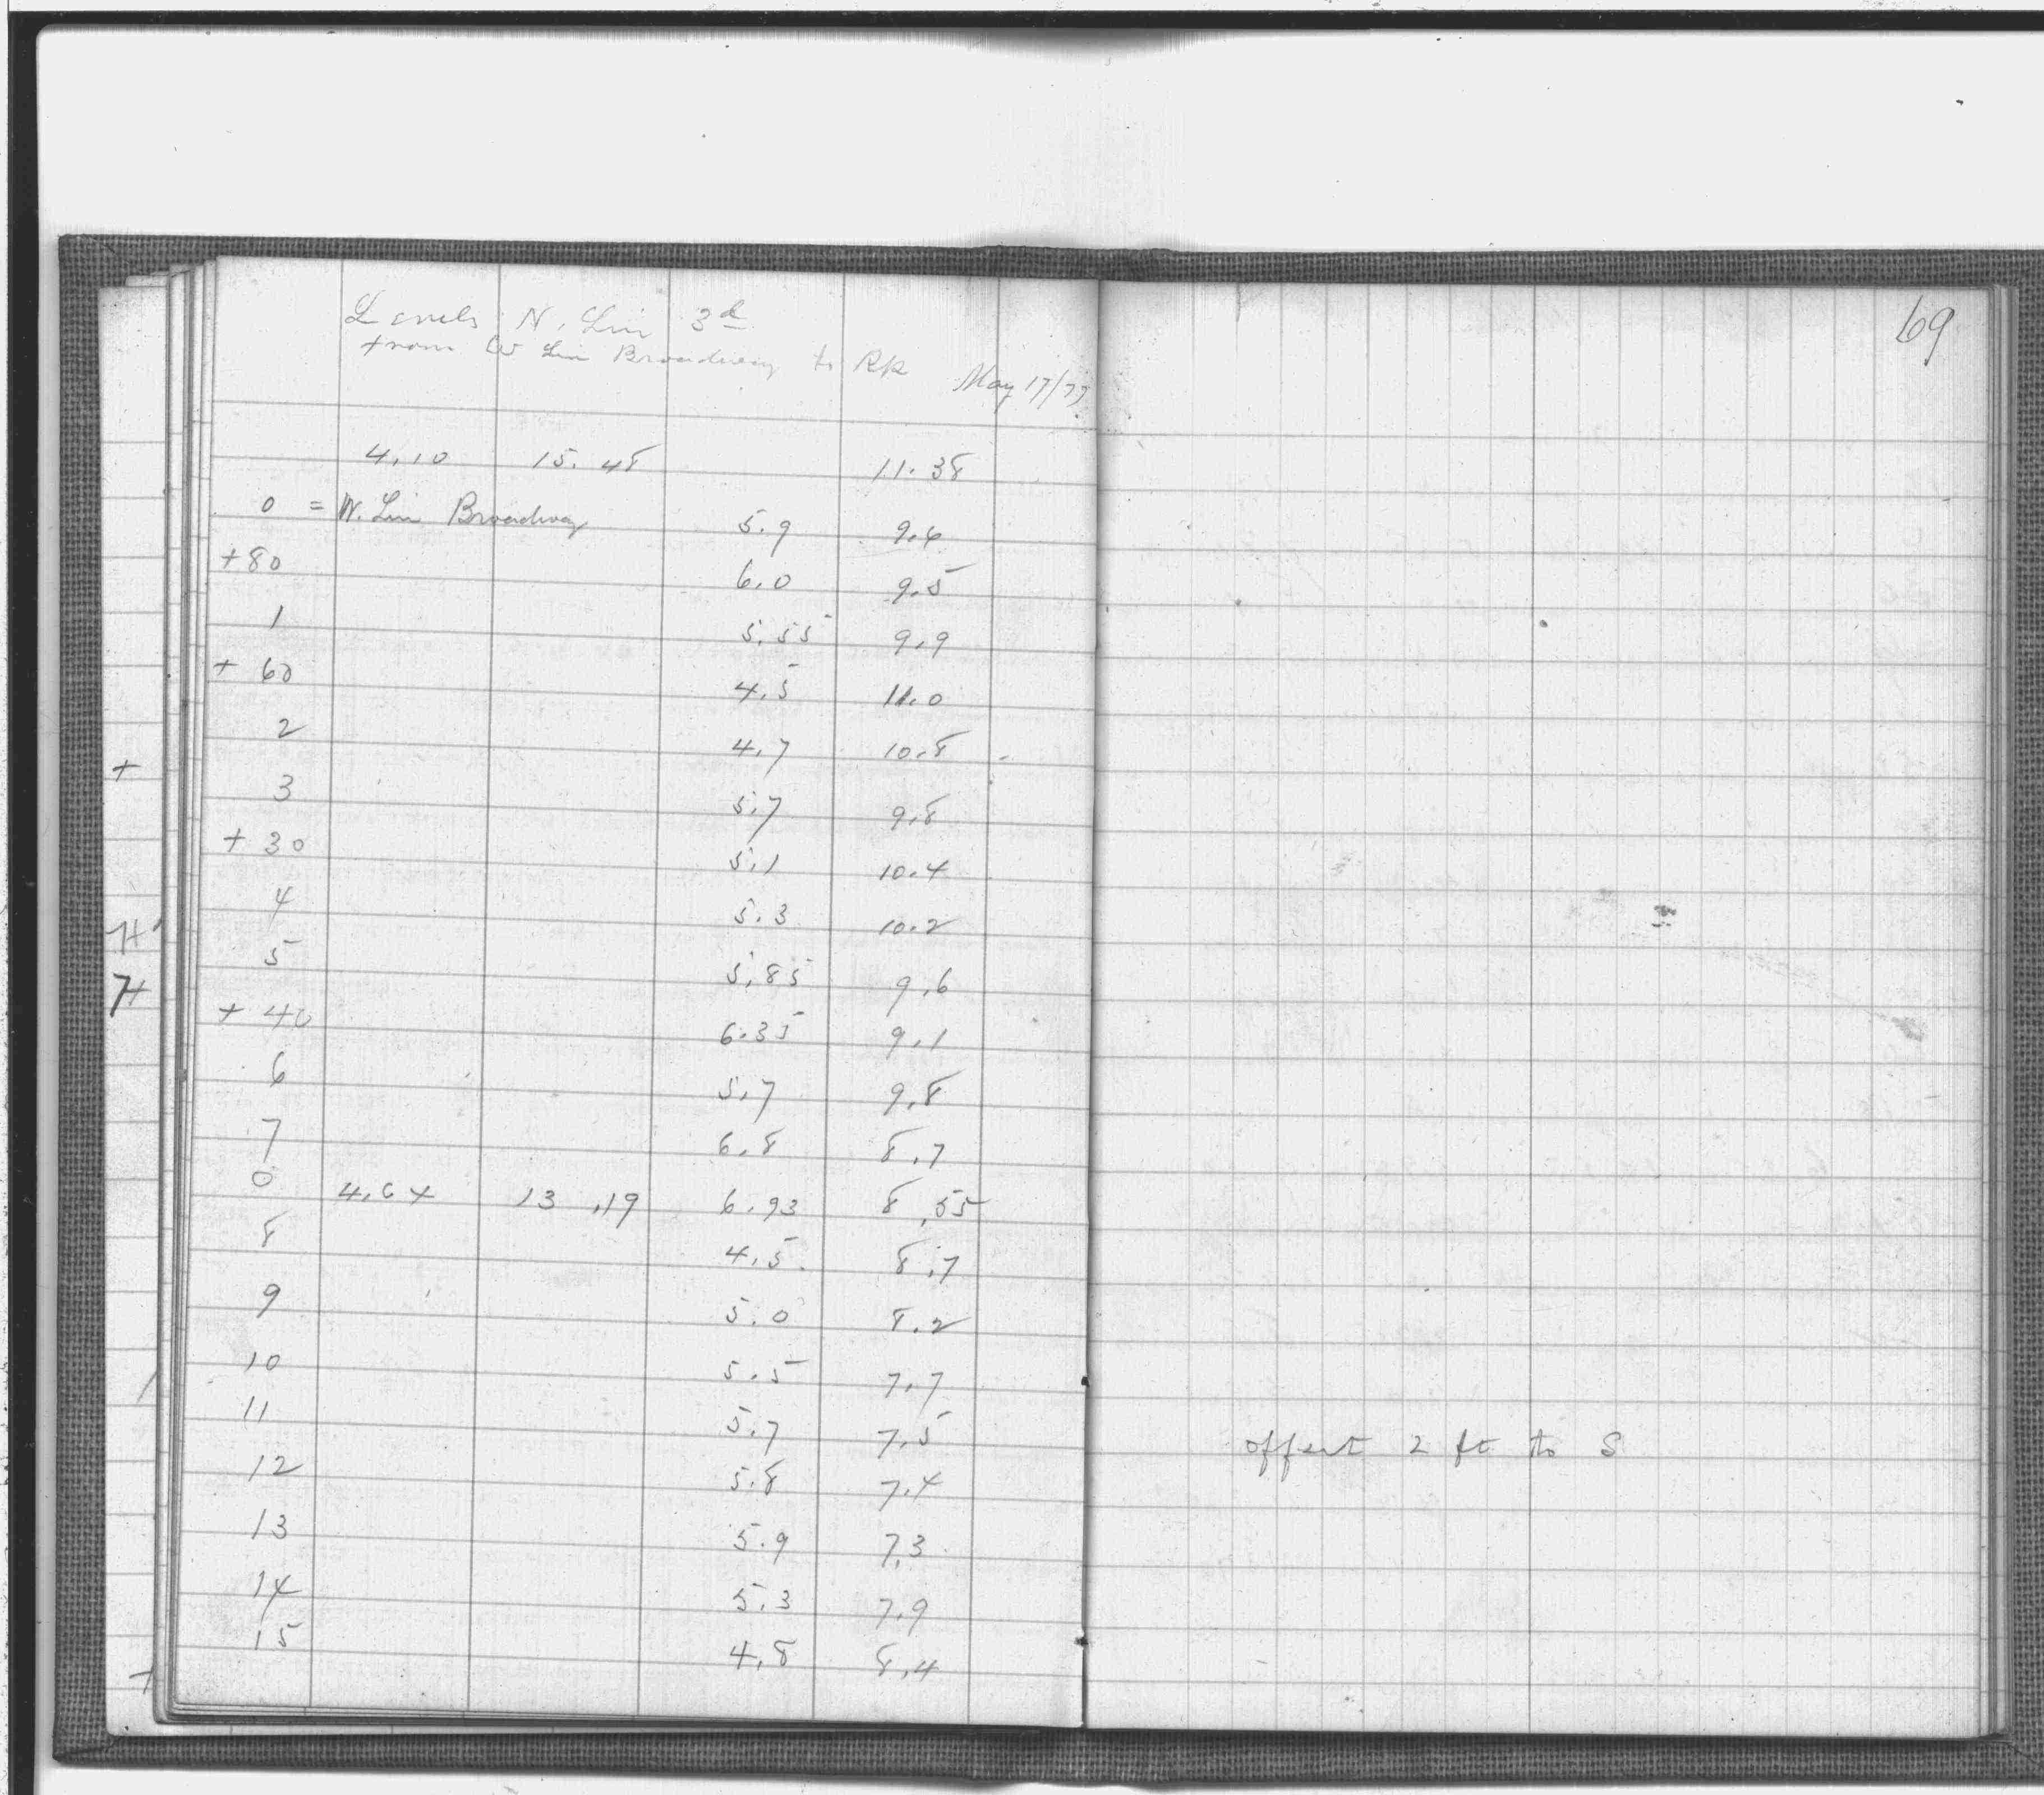 Levels N. Lin 3d
from W Lin Broadway to RR May 17/77
4.10 15.48 11.38
0 = W. Lin Broadway 5.9 9.6
+80 6.0 9.5
1 5.55 9.9
+ 60 4.5 11.0
2 4.7 10.8
3 5.7 9.8
+ 30 5.1 10.4
4 5.3 10.2
5 5.85 9.6
+ 40 6.35 9.1
6 5.7 9.8
7 6.8 8.7
0 4.64 13.19 6.93 8.55
8 4.5 8.7
9 5.0 8.2
10 5.5 7.7
11 5.7 7.5
12 5.8 7.4
13 5.9 7.3
14 5.3 7.9
15 4.8 8.4
69
offset 2 ft to S